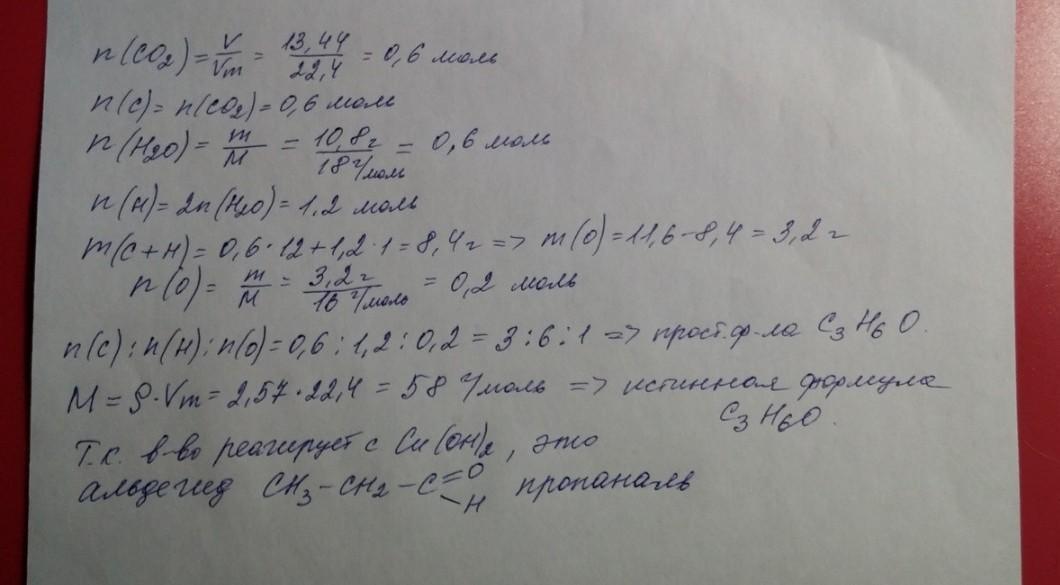 n(CO₂) = V/Vm = 13,44/22,4 = 0,6 моль
n(C) = n(CO₂) = 0,6 моль
n(H₂O) = m/M = 10,8г/18г/моль = 0,6 моль
n(H) = 2n(H₂O) = 1,2 моль
m(C+H) = 0,6·12+1,2·1 = 8,4г => m(O) = 11,6-8,4 = 3,2г
n(O) = m/M = 3,2г/16г/моль = 0,2 моль
n(C):n(H):n(O) = 0,6:1,2:0,2 = 3:6:1 => прост.ф-ла C₃H₆O.
M = ρ·Vm = 2,57·22,4 = 58 г/моль => истинная формула
C₃H₆O.
Т.к. в-во реагирует с Cu(OH)₂, это
альдегид CH₃-CH₂-C=O -H пропаналь